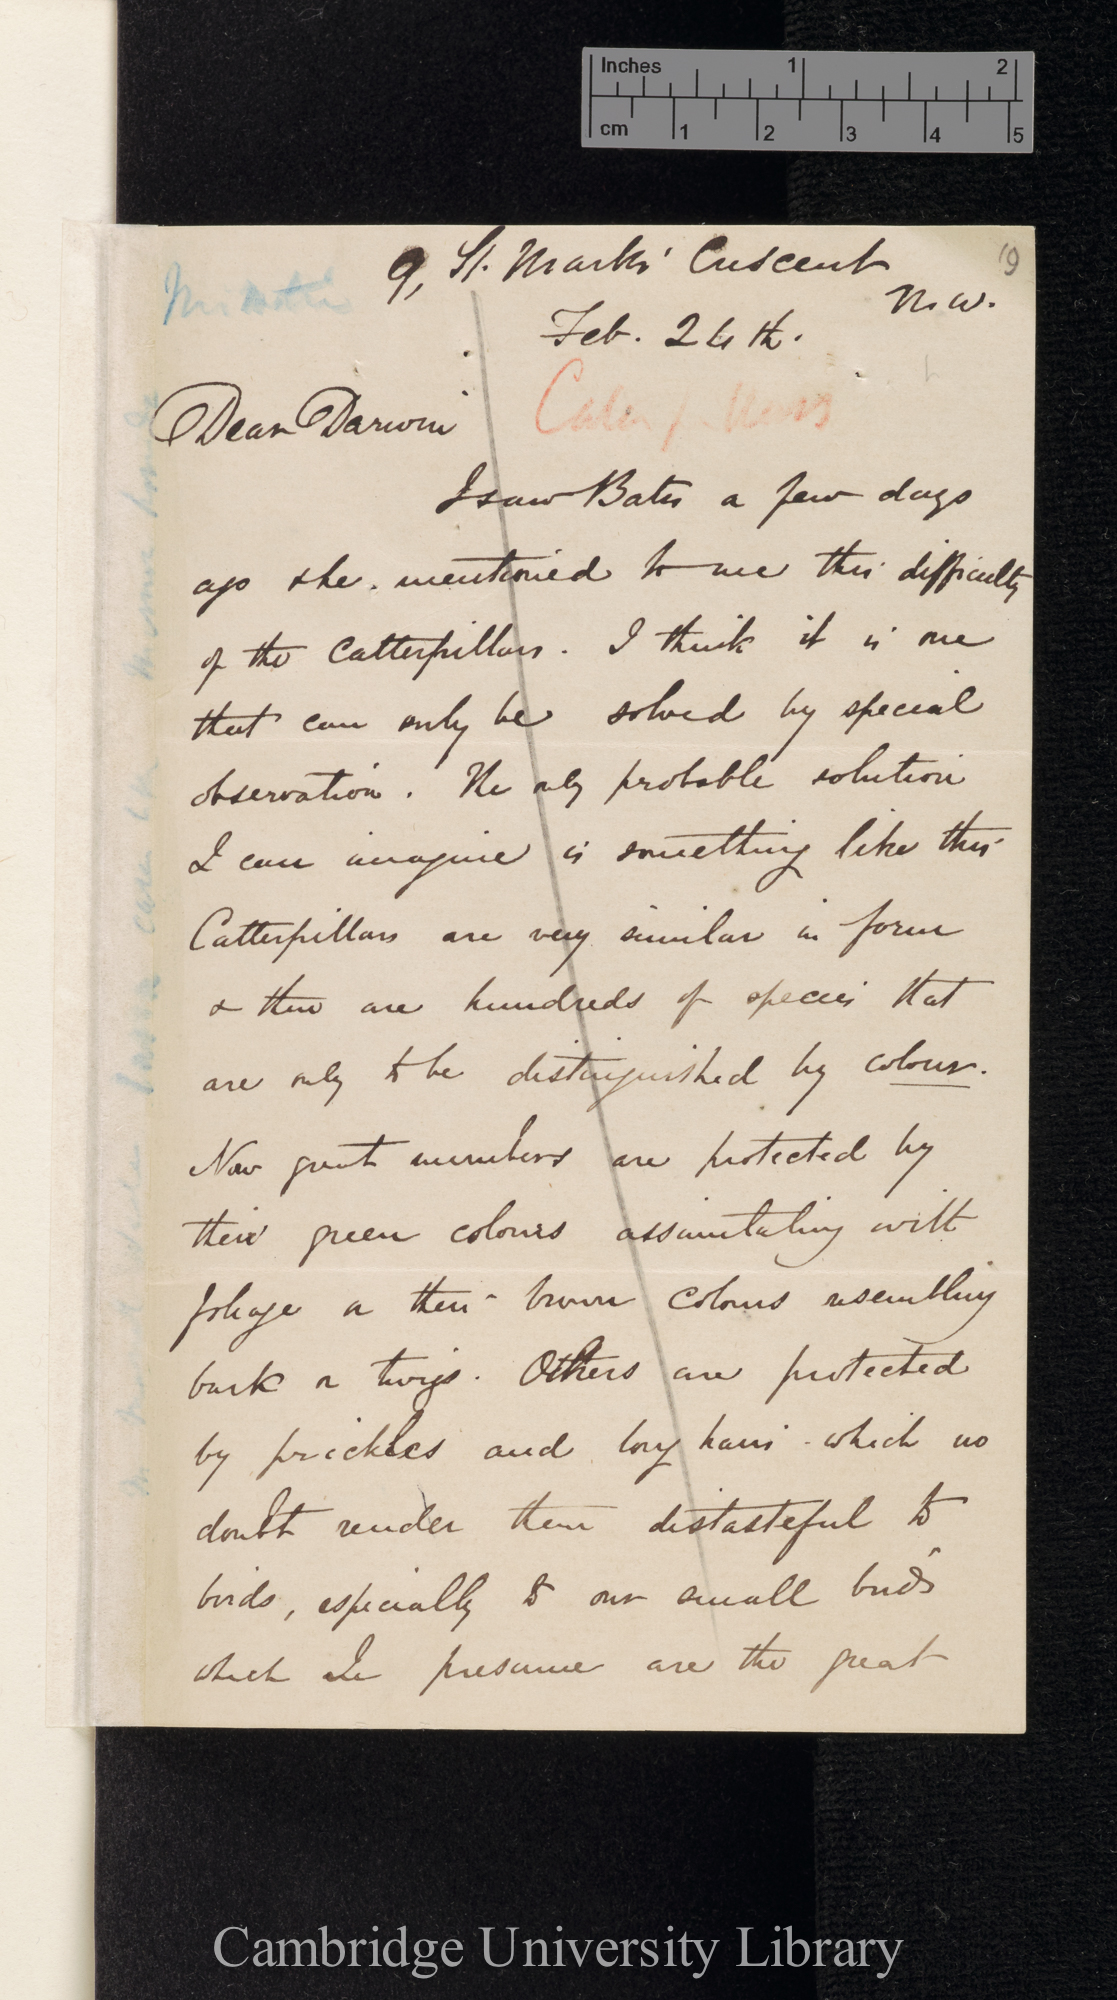 Inches 1 2
cm 1 2 3 4 5
9, St. Mark's Crescent
N.W.
Feb. 24th.
Dear Darwin
I saw Bates a few days
ago & he mentioned to me this difficulty
of the Catterpillars. I think it is one
that can only be solved by special
observation. The only probable solution
I can imagine is something like this
Catterpillars are very similar in form
& there are hundreds of species that
are only to be distinguished by colour.
Now great numbers are protected by
their green colours assimilating with
foliage or their brown colours resembling
bark or twigs. Others are protected
by prickles and long hairs which no
doubt render them distasteful to
birds, especially to our small birds
which I presume are the great
Cambridge University Library